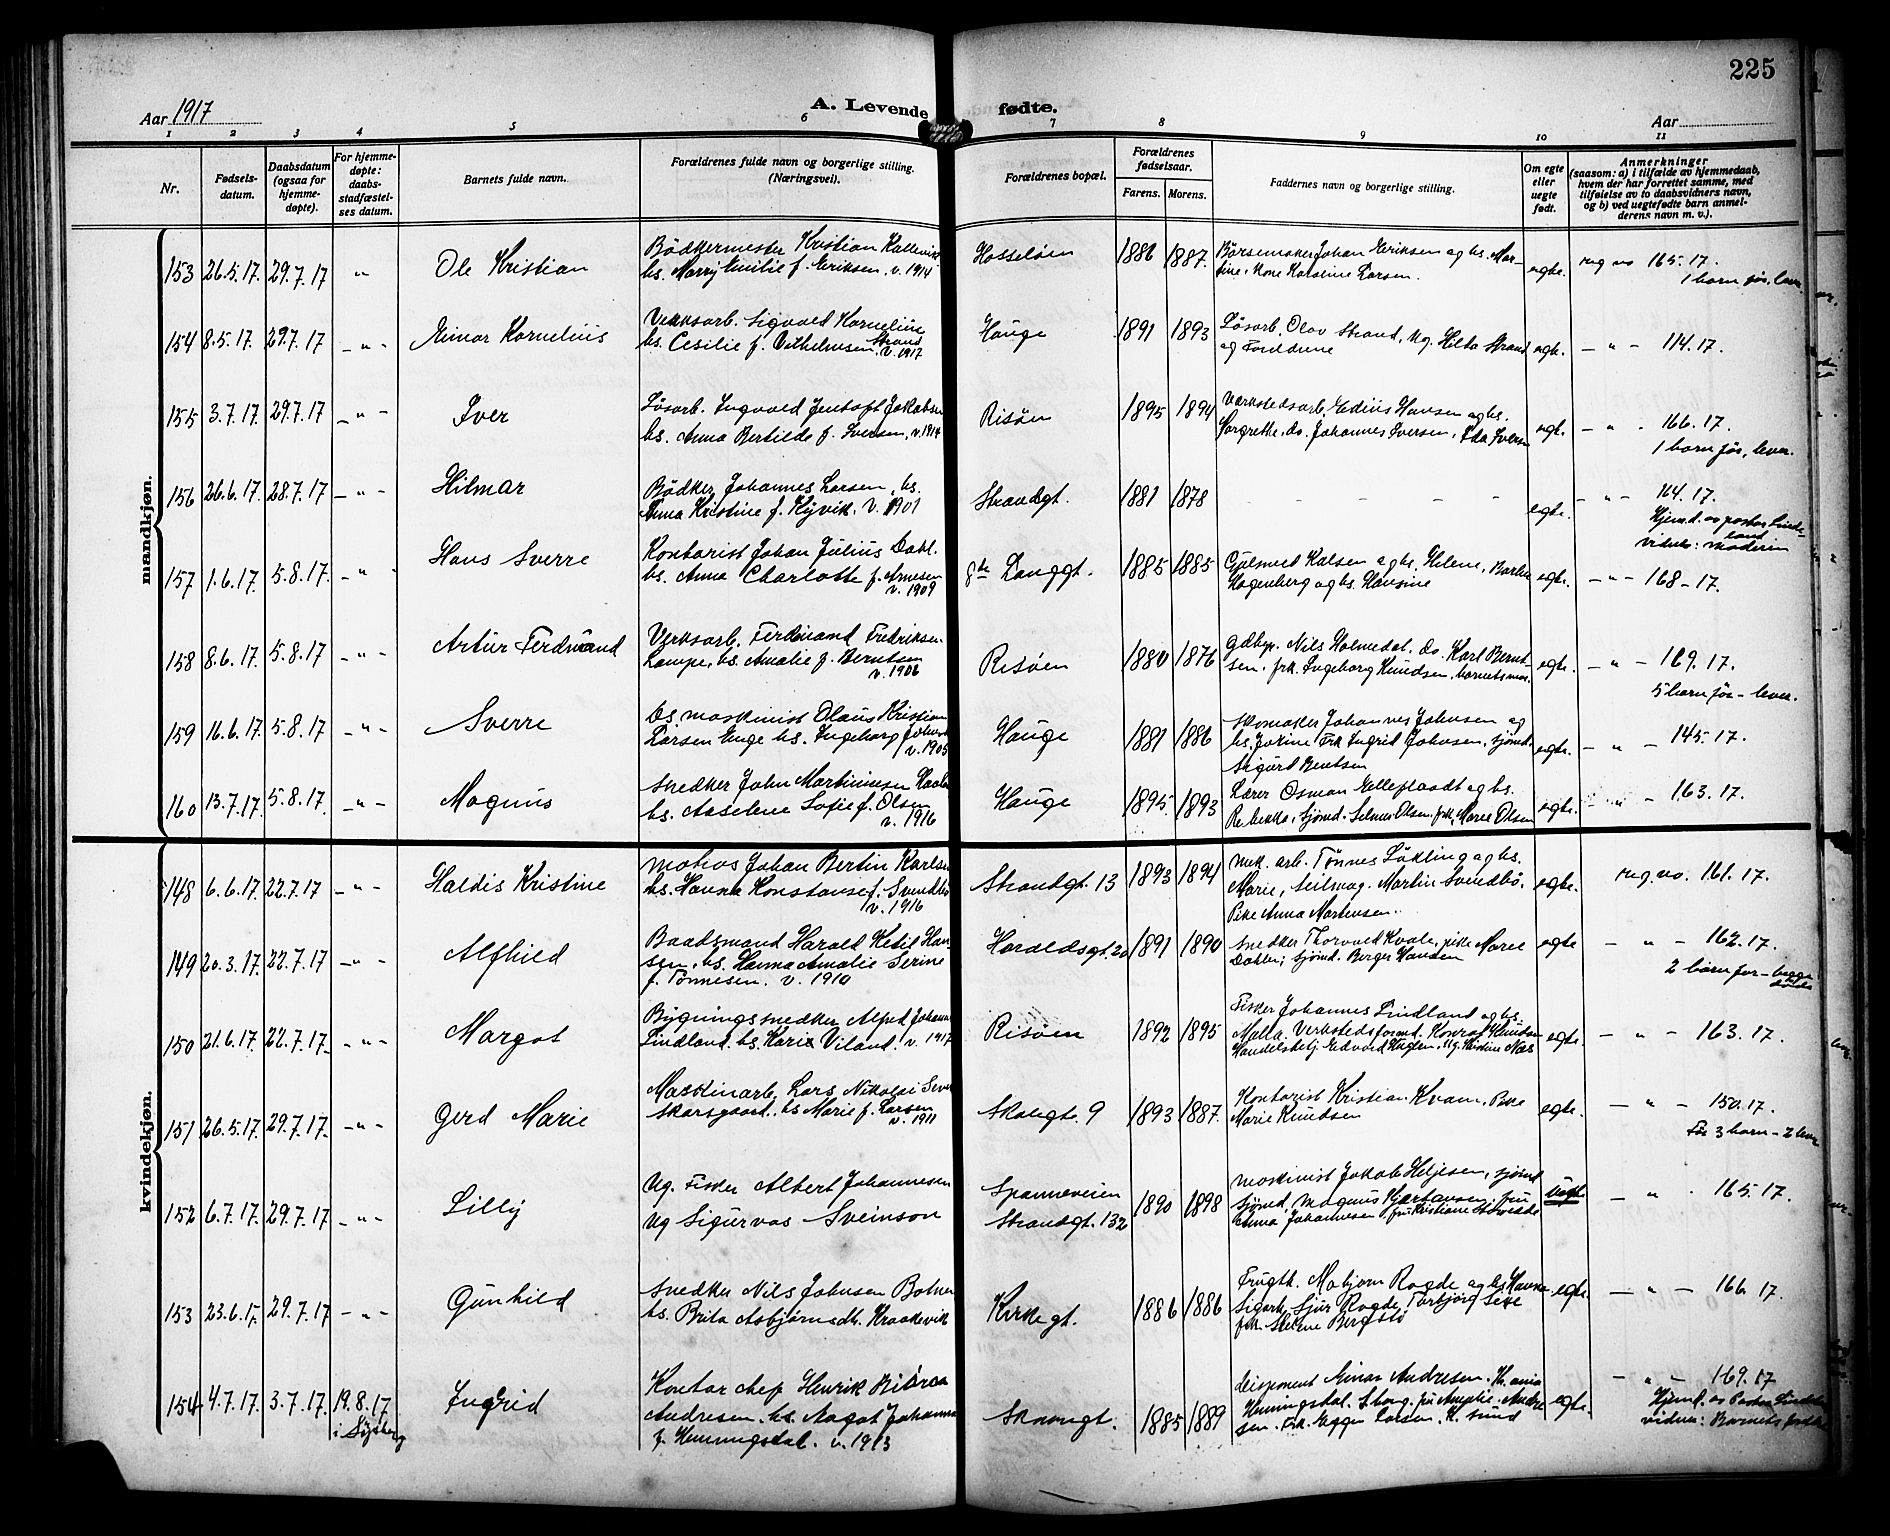 225
Aar 1917
A. Levende fødte.
Aar
1 2 3 4 5 6 7 8 9 10 11
Nr.
Fødsels-
datum.
Daabsdatum
(ogsaa for
hjemme-
døpte).
For hjemme-
døpte:
daabs-
stadfæstel-
ses datum.
Barnets fulde navn.
Forældrenes fulde navn og borgerlige stilling.
(Næringsvei).
Forældrenes bopæl.
Forældrenes
fødselsaar.
Farens. Morens.
Faddernes navn og borgerlige stilling.
Om egte
eller
uegte
født.
Anmerkninger
(saasom: a) i tilfælde av hjemmedaab,
hvem der har forrettet samme, med
tilføielse av to daabsvidners navn,
og b) ved uegtefødte barn anmel-
derens navn m. v.).
mandkjøn.
153 26.5.17. 29.7.17 "
Ole Kristian
Bödkermester Kristian
hs. Marry Emilie f. Eriksen, v. 1914
Hasseløen
1886 1887.
Børsemaker Johan Eriksen og hs. Mar-
tine. Kone Karoline Larsen.
egte.
reg no 165.17.
1 barn før, lever.
154 8.5.17. 29.7.17 - " -
Einar Kornelius
Verksarb. Sigvald Kornelius
hs. Cesilie f. Vilhelmsen Strand
v. 1917
Hauge
1891 1893
Løsarb. Olav Strand, Ug. Hilda Strand
og Foreldrene
egte.
- " - 114.17.
155 3.7.17. 29.7.17 - " -
Iver
Løsarb. Ingvald Jentoft Jakobsen
hs. Anna Bertilde f. Iversen, v. 1914
Risøen
1895 1894
Verkstedsarb. Edius Hansen og hs.
Margrethe. do. Johannes Iversen,
egt.
- " - 166.17.
1 barn før, lever.
156 26.6.17. 28.7.17 - " -
Hilmar
Bödker Johannes Larsen, hs.
Anna Kristine f. Kyvik. v. 1901
Strandgt.
1881 1878
- - - - -
egte.
- " - 164.17.
Hjemd. av pastor Lind-
land
vidner: moderen
157 1.6.17. 5.8.17. - " -
Hans Sverre
Kontorist Johan Julius Dahl.
hs. Anna Charlotte f. Arnesen
v. 1909
Langgt.
1885 1885
og hs. Helene,
Hagenberg og hs. Hansine
egte.
- " - 168-17.
158 8.6.17. 5.8.17 - " -
Artur Ferdinand
Verksarb. Ferdinand Fredriksen
Lampe, hs. Amalie f. Berntsen
v. 1906
Risøen
1880 1876
Nils Holmedal. do. Karl Bernt-
sen. frk. Ingeborg Knudsen, barnets mor.
egte.
- " - 169.17.
5 barn før - lever.
159 16.6.17. 5.8.17 - " -
Sverre
hs. maskinist Olaus Kristian
Larsen Enge hs. Ingeborg
v. 1905
Hauge
1881 1886
Skomaker Johannes Johnsen og
hs. Jorine Frk Ingrid Johnsen, sjömd.
Sigurd Bentsen
egte.
- " - 145.17.
160 13.7.17. 5.8.17. - " -
Magnus
Snedker John Martinusen
hs. Aaselene Sofie f. Olsen
v. 1916
Hauge
1895. 1893
Lærer Osman og hs.
Rebekka. Sjömd. Selmer Olsen. frk. Marie Olsen
egte.
- " - 163.17.
kvindekjøn.
148 6.6.17. 22.7.17 - " -
Haldis Kristine
Matros Johan Bertin Karlsen
hs. Hanna Konstanse f. Svendbö
v. 1916
Strandgt. 13
1893 1894
mek. arb. Tönnes og hs.
Marie, Seilmag. Martin Svendbö.
Pike Anna Martensen.
egte.
reg. no. 161.17.
149 20.3.17. 22.7.17 - " -
Alfhild
Baadsmand Harald Ketil Han-
sen, hs. Hanna Amalie Serine
f. Tönnesen. v. 1910
Haraldsgt. 20
1891 1890
Snedker Thorvald Kvale, pike Marie
Dahle; sjömd. Berger Hansen
egte
- " - 162.17.
2 barn før - begge
döde
150 21.6.17. 22.7.17. - " -
Margot
Bygningssnedker Alfred Johan
Lindland. hs. Kari Viland. v. 1917
Risöen
1892 1895
Fisker Johannes Lindland og hs.
Malla. Verkstedsformd. Konrad Knudsen
Handelsbetj. Edvard Ug. Kristine Næs
egte.
- " - 163.17.
151 26.5.17. 29.7.17. - " -
Gerd Marie
Maskinarb. Lars Nikolai
Skarsgaard. hs Marie f. Larsen
v. 1911
Skougt. 9
1893 1887.
Kontorist Kristian Kvam, Pike
Marie Knudsen
egte.
- " - 150.17.
Før 3 barn - 2 lever
152 6.7.17. 29.7.17 - " -
Lilly
Ug. Fisker Albert Johannesen
Ug Sigurvas Sveinson
Spanneveien
Strandgt. 132
1890 1898
maskinist Jakob Heljesen, sjömd
sjömd, Magnus Hjartansen. fru
Anna Johannesen
Uegt.
- " - 165.17.
153 23.6.17. 29.7.17 - " -
Gunhild
Snedker Nils Johnsen
hs. Brita Asbjörnsdtr. Kraakevik
Kirkegt.
1886 1886
Frugth. Rogde og hs Hanna
Sjur Rogde, Torbjörg
frk. Helene Bergstö
egte.
- " - 166.17.
154 4.7.17. 3.7.17. 19.8.17
Ingrid
Kontor chef Henrik
Andresen. hs. Aagot Johanna
f. Henningsdal. v. 1913
Skougt.
1885 1889
disponent Einar Andresen. Kr.ania
Henningsdal. fru Amalie Andre
sen. frk. Larsen. K. sund
egte.
- " - 169.17
Hjemd. av Pastor Lindland
vidner: Barnets